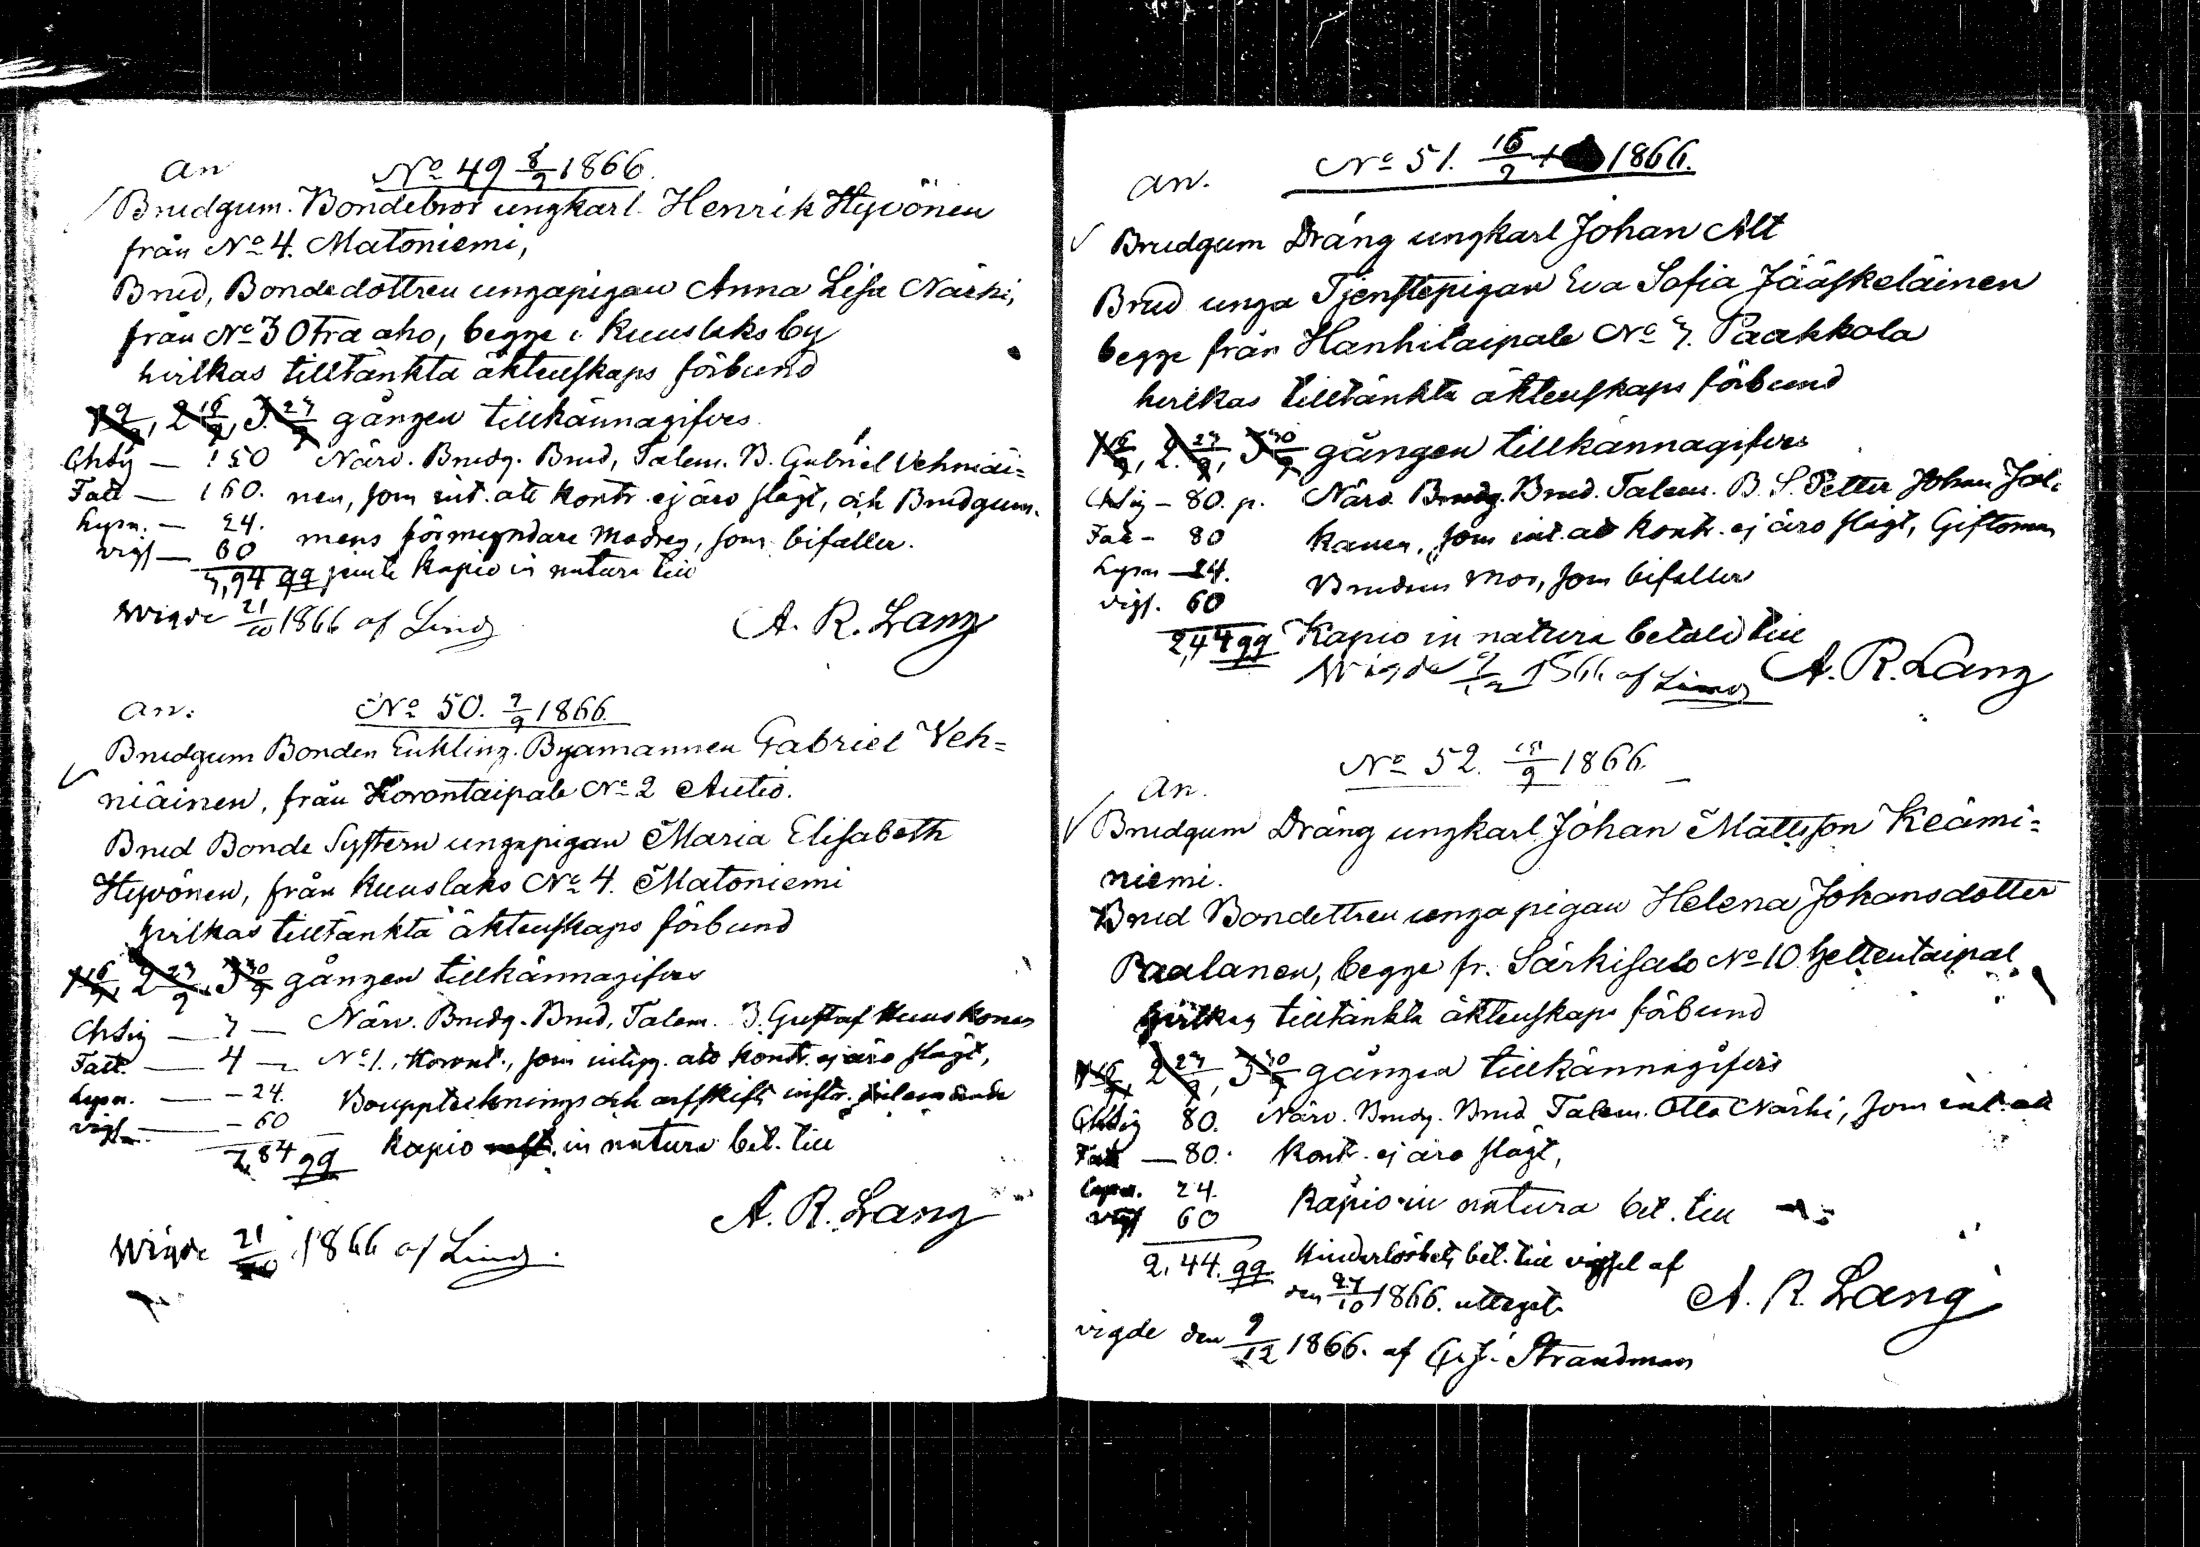 an No 49 8/9 1866.
Brudgum. Bondebror ungkarl. Henrik Hyvönen
från No 4. Matoniemi,
Brud, Bondedottren ungapigan Anna Lisa Närhi,
från No 3 Otra aho, begge i Kuuslaks by
hvilkas tilltänkta äktenskaps förbund
1 9/9, 2 16/9, 3. 23/9 gången tillkännagifves.
Chtig — 150 Närv. Brudg. Brud, Talem. B. Gabriel Vehniäi=
Fatt — 160. nen, som int. att kontr. ej äro slägt, och Brudgum-
Lysn. — 24. mens förmyndare Modren, som bifaller.
vigs — 60
3,94 qq jemte Kapio in natura till
Wigde 21/10 1866 af Lind
A. R. Lang
an. No 50. 9/9 1866.
Brudgum Bonden Enkling. Byamannen Gabriel Veh=
niäinen, från Korontaipale No 2 Autio.
Brud Bonde Systern ungapigan Maria Elisabeth
Hyvönen, från Kuuslaks No 4. Matoniemi
hvilkas tilltänkta äktenskaps förbund
1 16/9, 2 23/9, 3 30/9 gången tillkännagifves
Chtig — 3 — Närv. Brudg. Brud, Talem. B. Gustaf Kuuskonen
Fatt. — 4 — No 1. Koront., som intyg. att kontr. ej äro slägt,
Lysn. — - 24. Bouppteckning och arfskift
vigs — - 60
7,84 qq Kapio in natura bet. till
A. R. Lang
Wigde 21/10 1866 af Lind.
an. No 51. 15/9 1866.
Brudgum Dräng ungkarl Johan Alt
Brud unga Tjenstepigan Eva Sofia Jääskeläinen
begge från Hanhitaipale No 3. Paakkola
hvilkas tilltänkta äktenskaps förbund
1 16/9, 2. 23/9, 3 30/9 gången tillkännagifves
Chtig - 80. p. Närv. Brudg. Brud. Talem. B. S. Petter Johan Jal-
Fatt - 80 kanen, som int. att kontr. ej äro slägt, Giftoman
Lysn — 24. Brudens mor, som bifaller
vigs. 60
2,44 qq Kapio in natura betald till
Wigde 1866 af Lind A. R. Lang
No 52. 15/9 1866
an.
Brudgum Dräng ungkarl Johan Mattsson Keämi=
niemi.
Brud Bondettren unga pigan Helena Johansdotter
Paalanen, begge fr. Särkisalo No 10 Heltentaipal
hvilkas tilltänkta äktenskaps förbund
1 16/9, 2 23/9, 3 30/9 gången tillkännagifves
Chtig 80. Närv. Brudg. Brud Talem. Otto Närhi, som int. att
Fatt — 80. kontr. ej äro slägt,
Lysn. 24. Kapio in natura bet. till
vigs 60
2. 44. qq. Hinderlöshets bet. till vigsel af
den 27/10 1866. uttaget. A. R. Lang
vigde den 9/12 1866. af G. J. Strandman